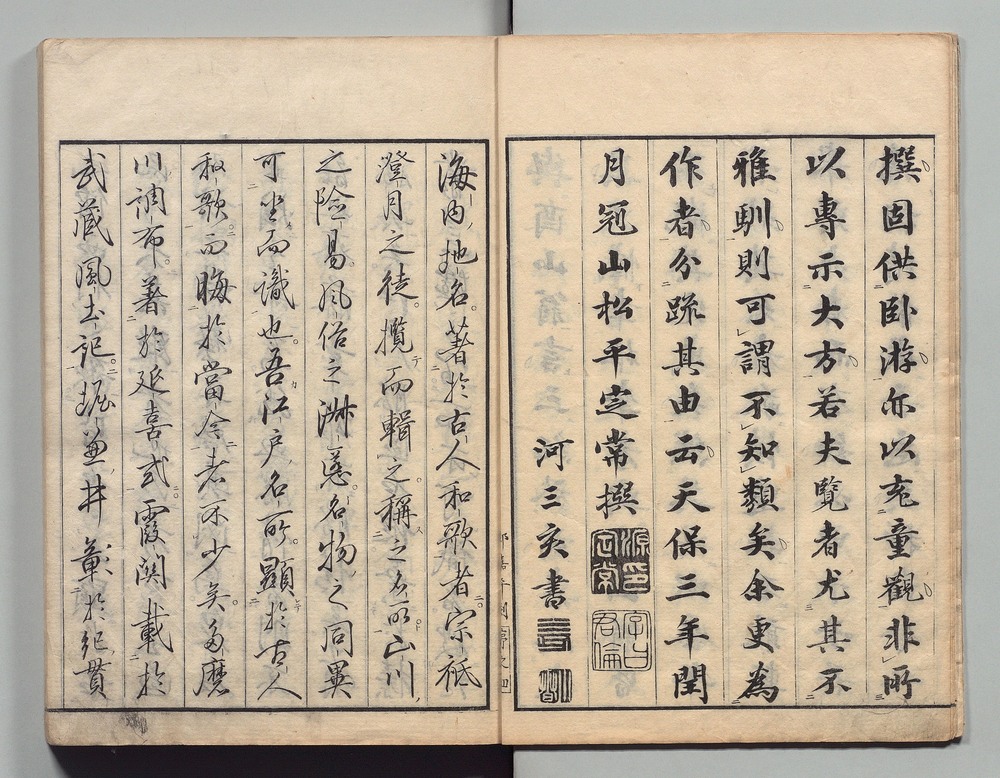 撰固供臥游亦以充童觀非所
以專示大方若夫覽者尤其不
雅馴則可謂不知類矣余更為
作者分疏其由云天保三年閏
月冠山松平定常撰
源印定常
字曰君倫
河三亥書
海內地名著於古人和歌者宗祇
澄月之徒攬而輯之稱之名所山川
之險易風俗之淋慝名物之同異
可坐而識也吾江戶名所顯於古人
和歌而晦於當今者不少矣多麼
川調布著於延喜式霞関載於
武蔵風土記堀兼井載於紀貫